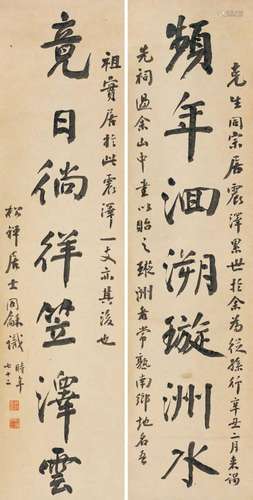 生同宗居震澤累世於余為從孫行辛丑二月来謁
頻年洄溯璇洲水
先祠過余山中書以貽之璇洲者常熟南鄉地名吾
祖實居於此震澤一支亦其後也
竟日徜徉笠澤雲
松禪居士同龢識 時年
七十二